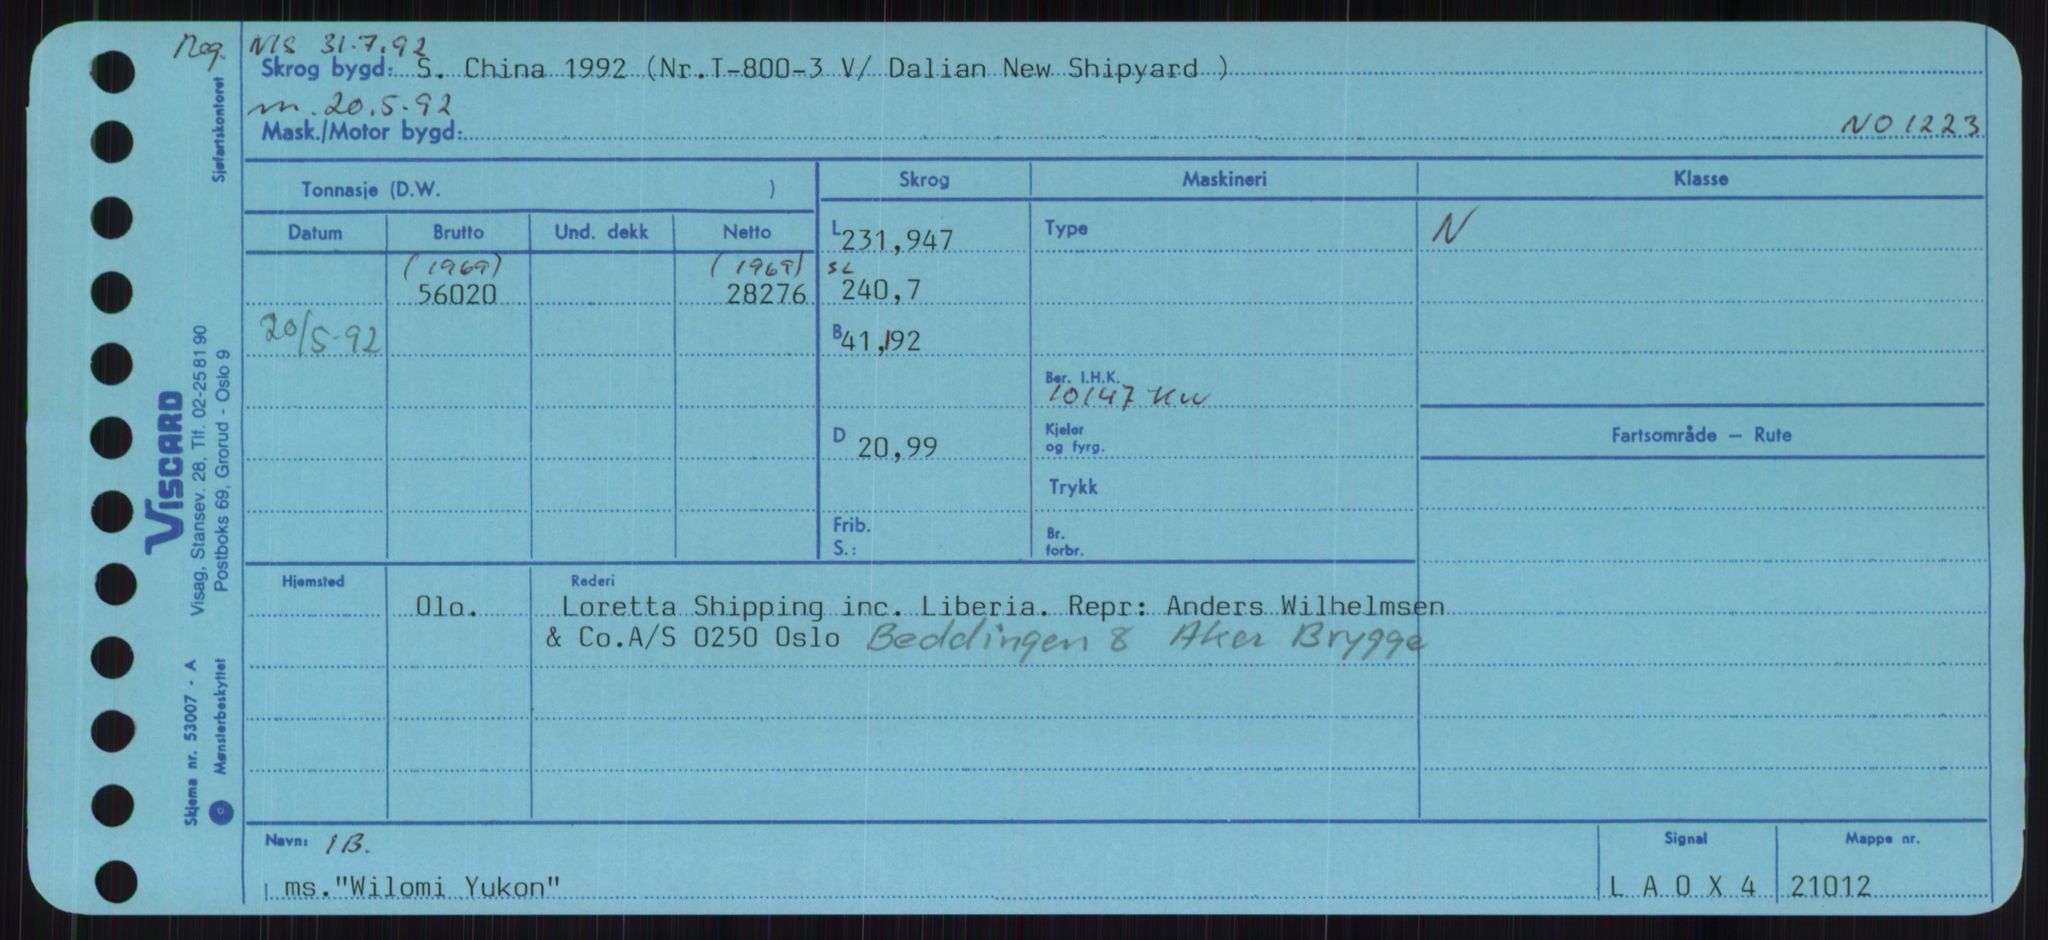 Reg. NIS 31.7.92
Skrog bygd: S. China 1992 (Nr.T-800-3 V/ Dalian New Shipyard )
m. 20.5.92
Mask./Motor bygd:
NO 1223
Tonnasje (D.W. )
Skrog
Maskineri
Klasse
Datum
Brutto
Und. dekk
Netto
L 231,947
Type
N
(1969)
(1969)
SL
56020
28276
240,7
20/5-92
B 41,192
Ber. I.H.K.
10147 KW
D 20,99
Kjeler
og fyrg.
Fartsområde — Rute
Trykk
Frib.
S.:
Br.
forbr.
Hjemsted
Rederi
Olo. Loretta Shipping inc. Liberia. Repr: Anders Wilhelmsen
& Co.A/S 0250 Oslo Beddingen 8 Aker Brygge
Navn: 1B.
Signal
Mappe nr.
ms."Wilomi Yukon"
L A O X 4
21012
Sjøfartskontoret
VISCARD
Visag, Stansev. 28, Tlf. 02-25 81 90
Postboks 69, Grorud - Oslo 9
Skjema nr. 53007 - A
Mønsterbeskyttet